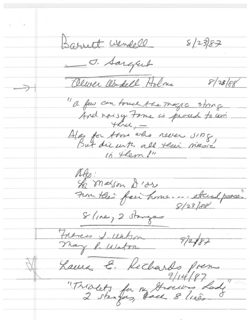 Barrett Wendell 8/27/87
O. Sargent
Oliver Wendell Holmes 8/28/88
"A few can touch the magic string
And noisy fame is proud to win
them,—
Alas for those who never sing,
But die with all their music
in them!"
Also:
La Maison D'or
From their fair home....
8/28/88
8 lines, 2 stanzas
Francis S. Watson
Mary P. Watson 9/2/87
Laura E. Richards poem
9/14/87
"Triolets for my Gracious Lady"
2 stanzas, each 8 lines